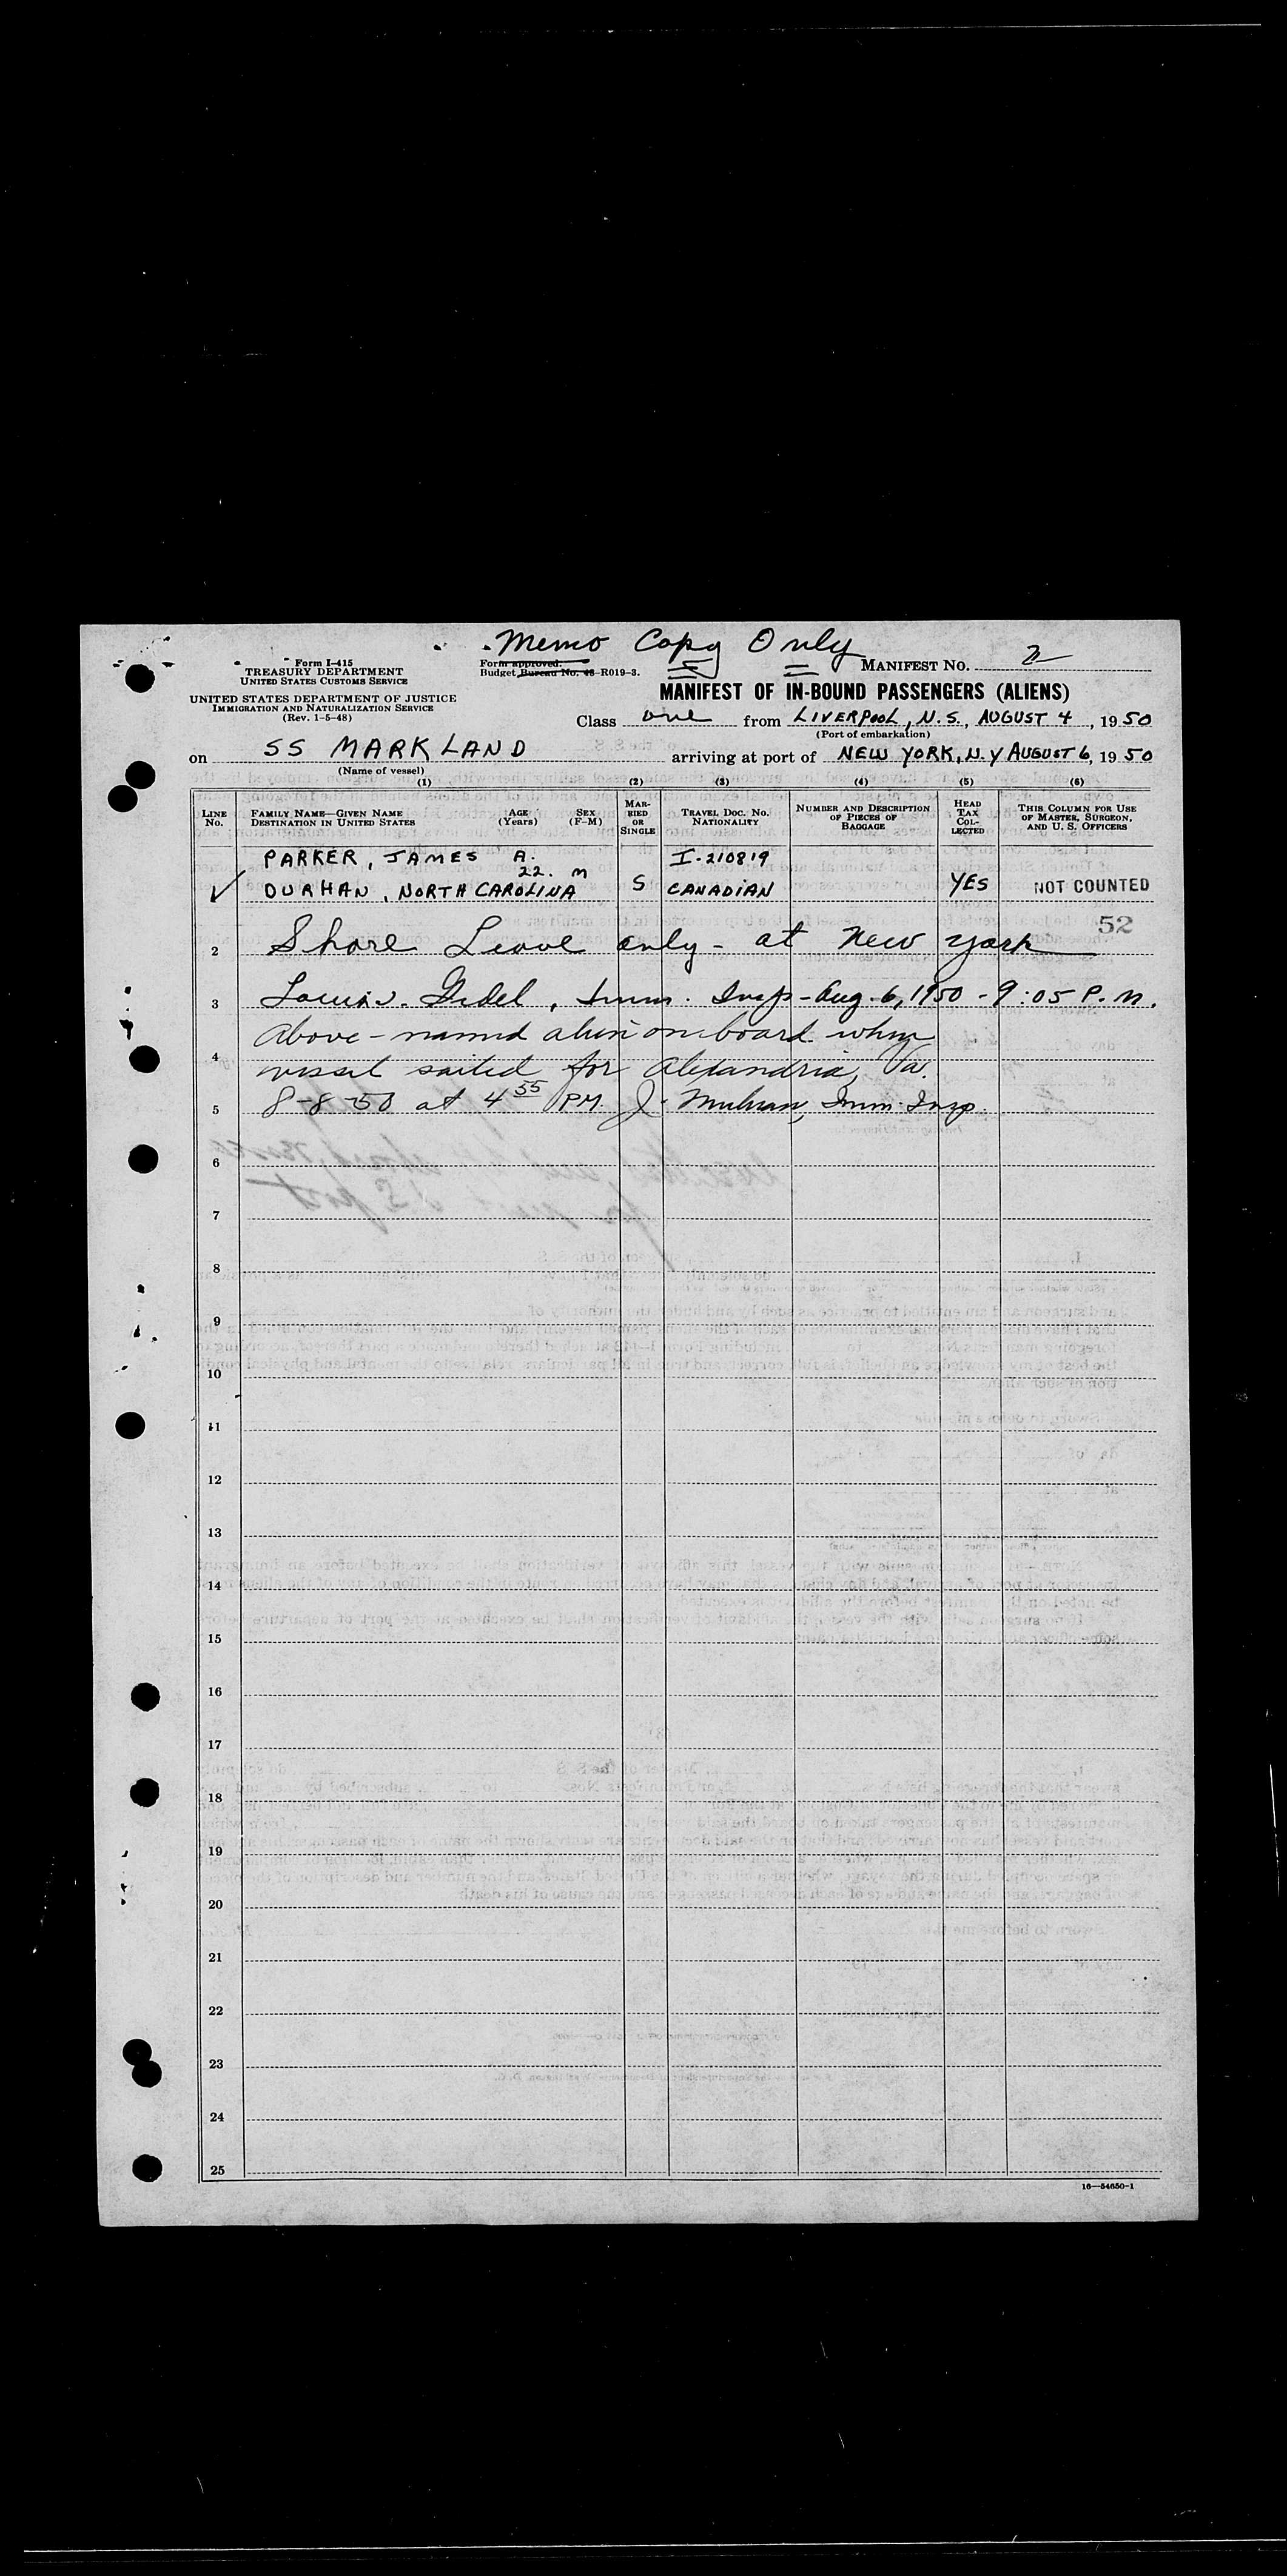 Memo Copy Only
Form I-415
TREASURY DEPARTMENT
UNITED STATES CUSTOMS SERVICE
Form approved.
Budget Bureau No. 43-R019-3.
MANIFEST NO. 2
UNITED STATES DEPARTMENT OF JUSTICE
IMMIGRATION AND NATURALIZATION SERVICE
(Rev. 1-5-48)
MANIFEST OF IN-BOUND PASSENGERS (ALIENS)
Class one from LIVERPOOL, N.S., AUGUST 4, 1950
(Port of embarkation)
on SS MARKLAND arriving at port of NEW YORK, N.Y AUGUST 6, 1950
(Name of vessel)
(1) (2) (3) (4) (5) (6)
LINE No.
FAMILY NAME—GIVEN NAME
DESTINATION IN UNITED STATES
AGE (Years)
SEX (F-M)
MARRIED OR SINGLE
TRAVEL DOC. NO.
NATIONALITY
NUMBER AND DESCRIPTION OF PIECES OF BAGGAGE
HEAD TAX COLLECTED
THIS COLUMN FOR USE OF MASTER, SURGEON, AND U. S. OFFICERS
PARKER, JAMES A. I-210819
22. M
DURHAN, NORTH CAROLINA S CANADIAN YES NOT COUNTED
52
2 Shore Leave only - at New York
3 Louis J. Fidel, Imm. Insp - Aug. 6, 1950 - 9:05 P.M.
Above-named alien on board when
4 vessel sailed for Alexandria, Va.
5 8-8-50 at 4 55 PM. J. Imm. Insp.
6
7
8
9
10
11
12
13
14
15
16
17
18
19
20
21
22
23
24
25
16—54650-1